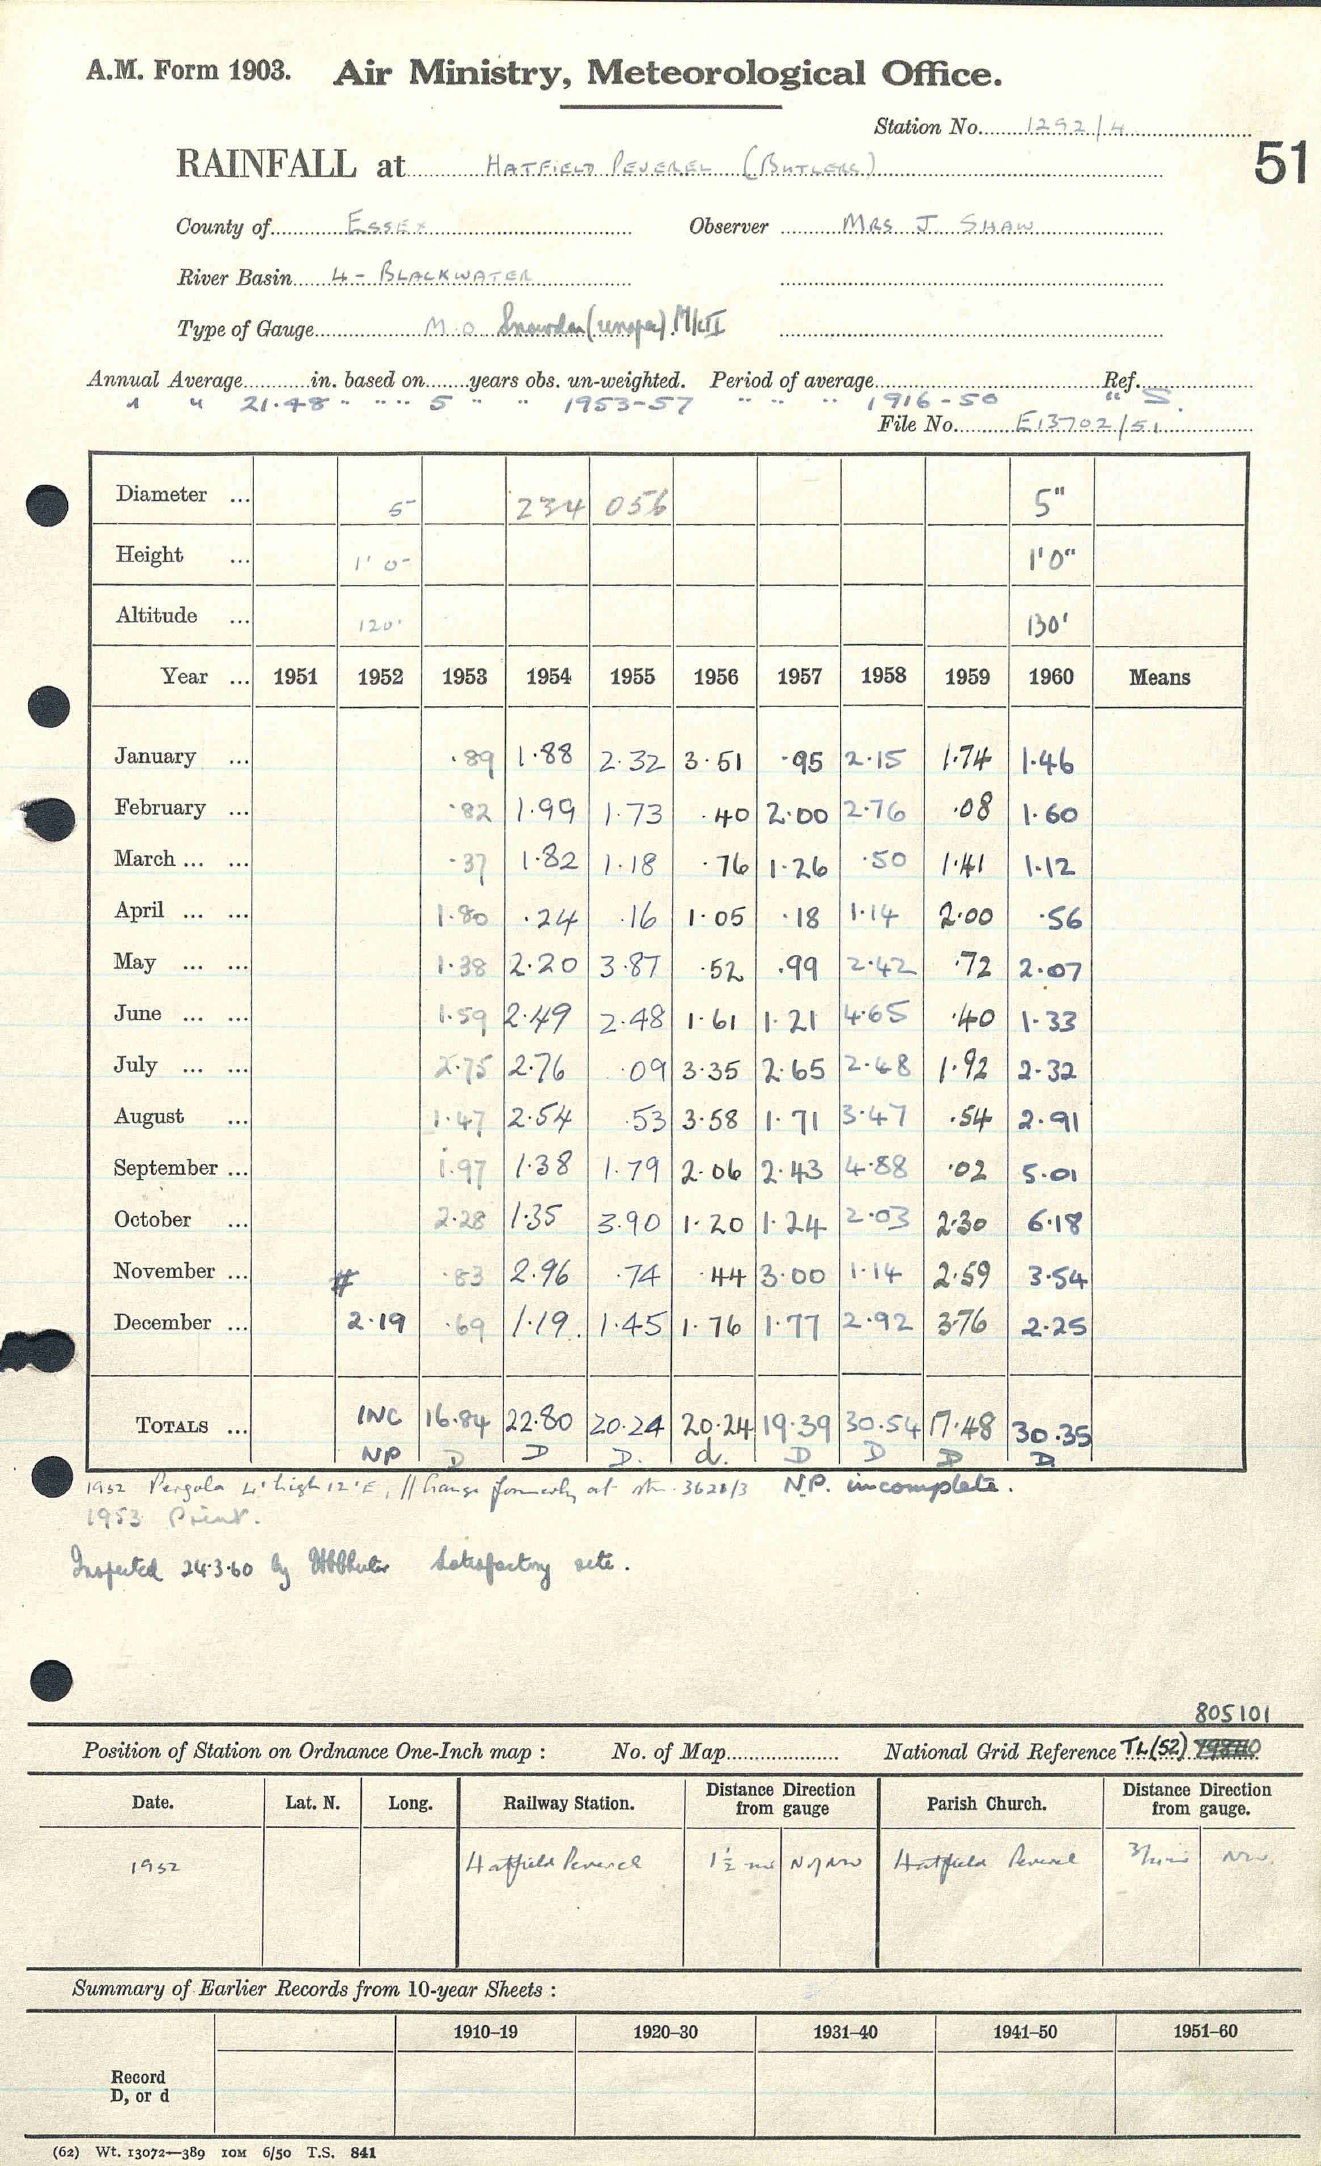 A.M. Form 1903. Air Ministry, Meteorological Office.
Station No. 1292/4
51
RAINFALL at HATFIELD PEVEREL (BUTLERS)
County of ESSEX Observer MRS J. SHAW
River Basin 4 - BLACKWATER
Type of Gauge M.O. Snowdon Mk II
Annual Average in. based on years obs. un-weighted. Period of average Ref.
" " 21.48 " " " 5 " " 1953-57 " " " " 1916-50 " S.
File No. E13702/51
Diameter ... 5" 234 056 5"
Height ... 1' 0" 1'0"
Altitude ... 120' 130'
Year ... 1951 1952 1953 1954 1955 1956 1957 1958 1959 1960 Means
January ... .89 1.88 2.32 3.51 .95 2.15 1.74 1.46
February ... .82 1.99 1.73 .40 2.00 2.76 .08 1.60
March ... ... .37 1.82 1.18 .76 1.26 .50 1.41 1.12
April ... ... 1.80 .24 .16 1.05 .18 1.14 2.00 .56
May ... ... 1.38 2.20 3.87 .52 .99 2.42 .72 2.07
June ... ... 1.59 2.49 2.48 1.61 1.21 4.65 .40 1.33
July ... ... 2.75 2.76 .09 3.35 2.65 2.48 1.92 2.32
August ... 1.47 2.54 .53 3.58 1.71 3.47 .54 2.91
September ... 1.97 1.38 1.79 2.06 2.43 4.88 .02 5.01
October ... 2.28 1.35 3.90 1.20 1.24 2.03 2.30 6.18
November ... # .83 2.96 .74 .44 3.00 1.14 2.59 3.54
December ... 2.19 .69 1.19 1.45 1.76 1.77 2.92 3.76 2.25
TOTALS ... INC 16.84 22.80 20.24 20.24 19.39 30.54 17.48 30.35
NP D D D. d. D D D D
1952 Pergola 4' high 12' E, // Gauge formerly at stn. 3628/3 N.P. incomplete.
1953 Print.
Inspected 24.3.60 by Satisfactory site.
805101
Position of Station on Ordnance One-Inch map : No. of Map National Grid Reference TL(52)
Date. Lat. N. Long. Railway Station. Distance from Direction gauge Parish Church. Distance from Direction gauge.
1952 Hatfield Peverel 1½ mi N by NW Hatfield Peverel NW.
Summary of Earlier Records from 10-year Sheets :
1910–19 1920–30 1931–40 1941–50 1951–60
Record
D, or d
(62) Wt. 13072—389 10M 6/50 T.S. 841